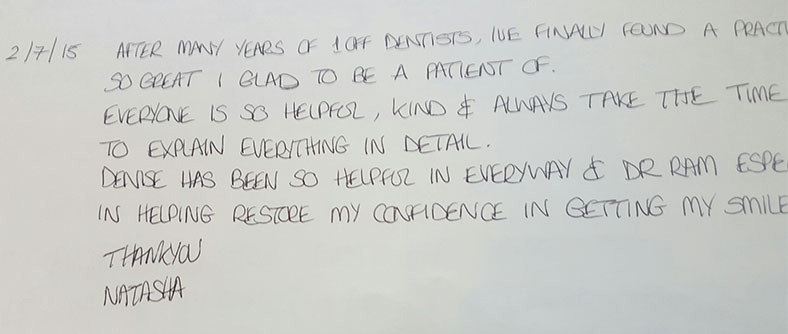 2/7/15 AFTER MANY YEARS OF 1 OFF DENTISTS, IVE FINALLY FOUND A PRACTI
SO GREAT I GLAD TO BE A PATIENT OF.
EVERYONE IS SO HELPFUL, KIND & ALWAYS TAKE THE TIME
TO EXPLAIN EVERYTHING IN DETAIL.
DENISE HAS BEEN SO HELPFUL IN EVERYWAY & DR RAM ESPE
IN HELPING RESTORE MY CONFIDENCE IN GETTING MY SMILE
THANKYOU
NATASHA